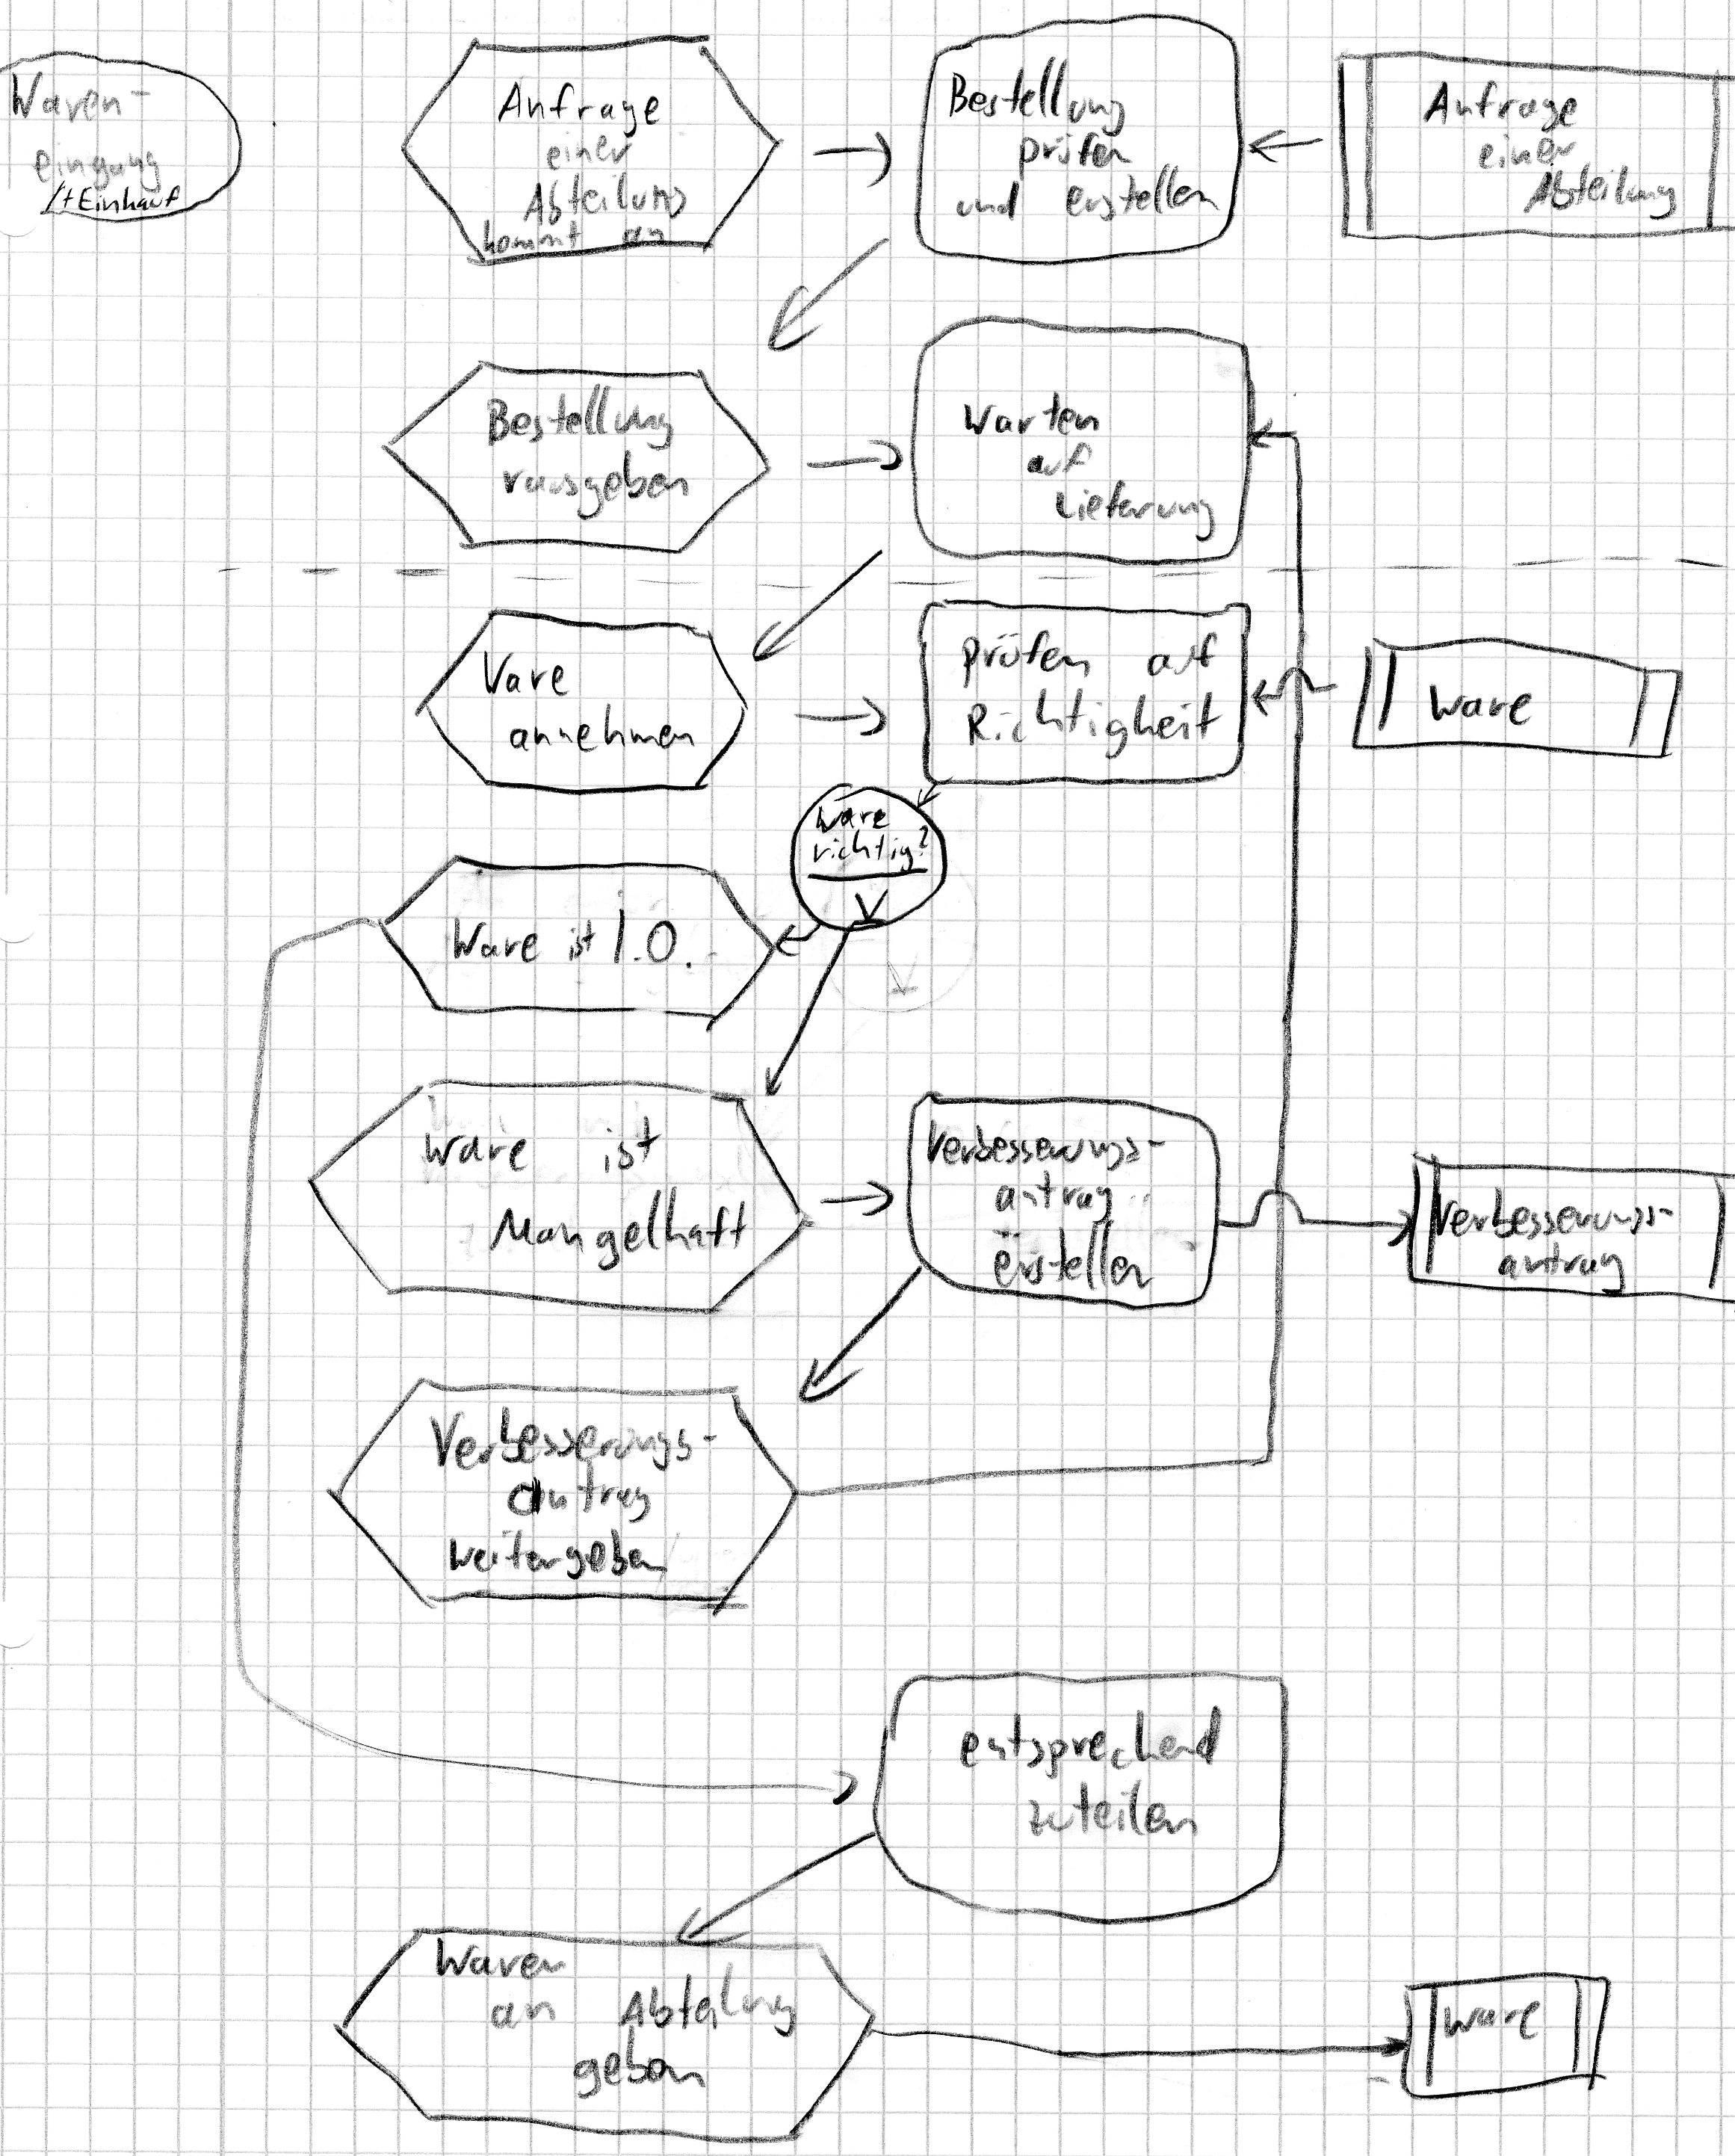 Waren-
eingang
/+Einkauf
Anfrage
einer
Abteilung
kommt an
Bestellung
prüfen
und erstellen
Anfrage
einer
Abteilung
Bestellung
rausgeben
Warten
auf
Lieferung
Ware
annehmen
prüfen auf
Richtigkeit
Ware
Ware
richtig?
V
Ware ist I.O.
Ware ist
Mangelhaft
Verbesserungs-
antrag
erstellen
Verbesserungs-
antrag
Verbesserungs-
antrag
weitergeben
entsprechend
zuteilen
Waren
an Abteilung
geben
Ware